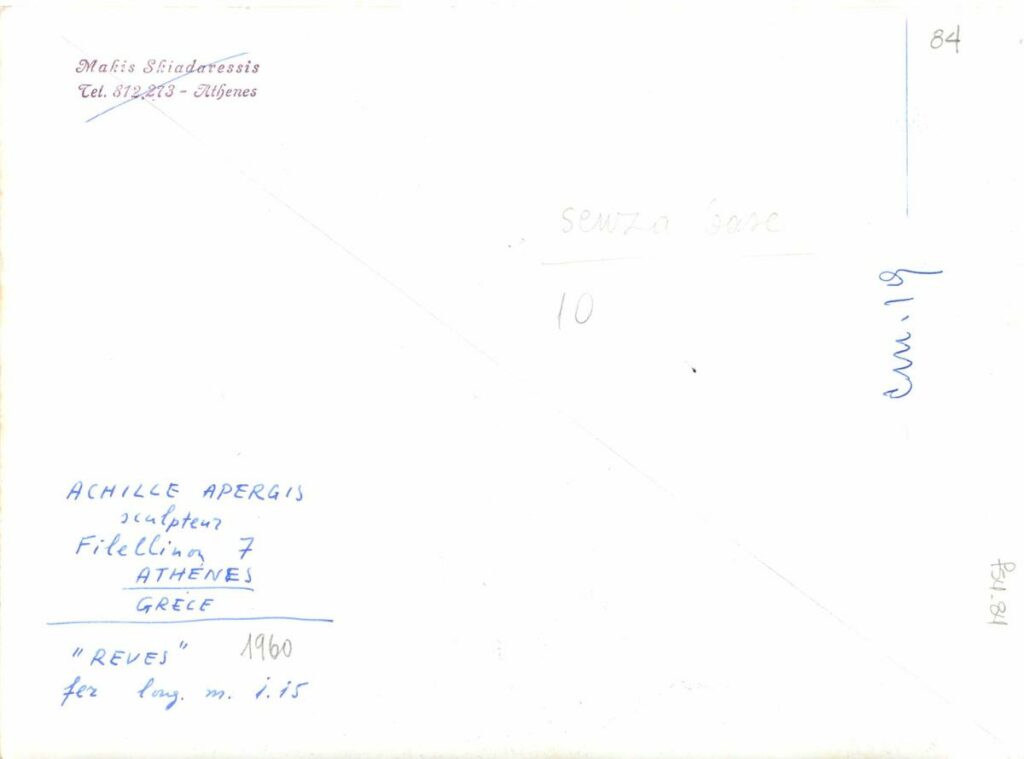 84
Makis Skiadaressis
Tel. 812.273 - Athenes
senza base
10
cm. 19
ACHILLE APERGIS
sculpteur
Filellinon 7
ATHÉNES
GRECE
"REVES" 1960
fer long. m. 1.15